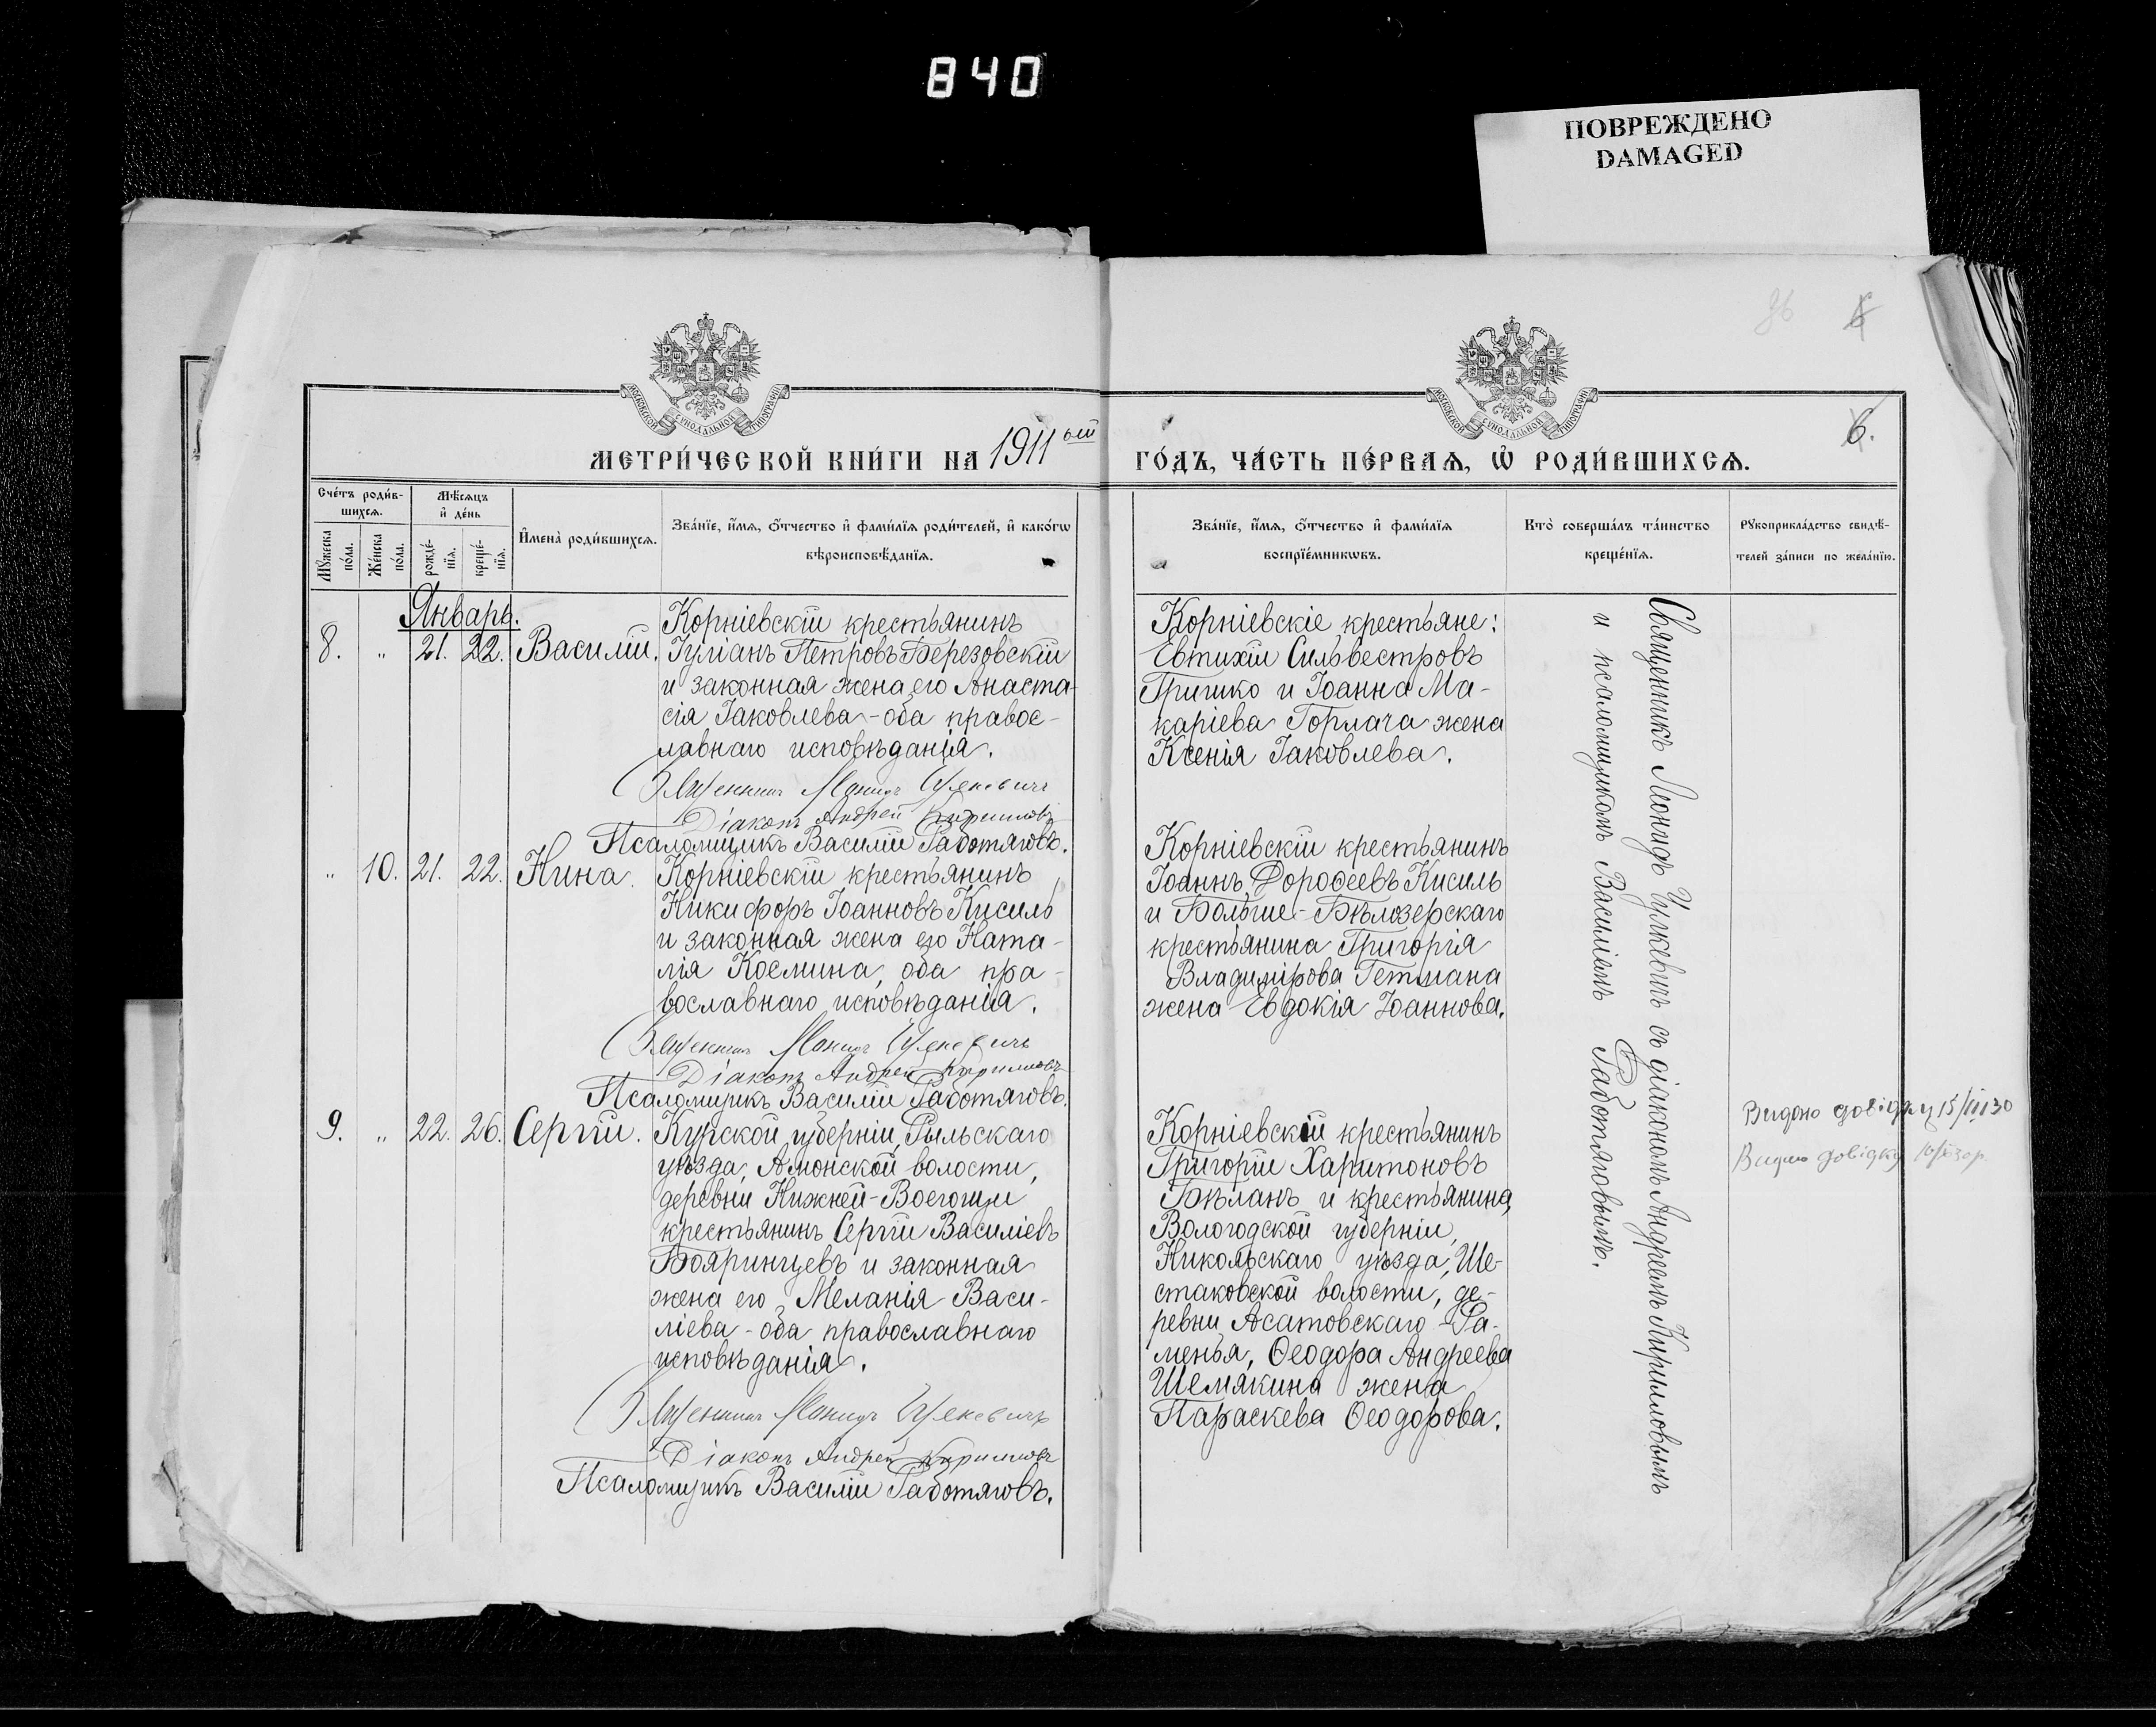 840
ПОВРЕЖДЕНО
DAMAGED
6.
МЕТРИ́ЧЕСКОЙ КНИ́ГИ НА 1911ый ГО́ДЪ, ЧА́СТЬ ПЕ́РВАѦ, Ѡ҆ РОДИ́ВШИХСѦ.
Сче́тъ роди́в-
шихсѧ.
Мѣ́сѧцъ
и҆ де́нь
Мꙋ́жеска
по́ла.
Же́нска
по́ла.
рожде́-
нїѧ.
креще́-
нїѧ.
И҆мена̀ роди́вшихсѧ.
Зва́нїе, и҆́мѧ, ѻ҆́тчество и҆ фами́лїѧ роди́телей, и҆ како́гѡ
вѣроисповѣ́данїѧ.
Зва́нїе, и҆́мѧ, ѻ҆́тчество и҆ фами́лїѧ
воспрїе́мникѡвъ.
Кто̀ соверша́лъ та́инство
креще́нїѧ.
Рꙋкоприкла́дство свидѣ́-
телей за́писи по жела́нїю.
Январь.
8. „ 21. 22. Василій.
Корніевскій крестьянинъ
Іуліанъ Петровъ Березовскій
и законная жена его Анаста-
сія Іаковлева - оба правос-
лавнаго исповѣданія.
Священникъ Леонидъ Цулкевичъ
Діаконъ Андрей Кирилловъ
Псаломщикъ Василій Работяговъ.
Корніевскіе крестьяне:
Евтихій Сильвестровъ
Гришко и Іоанна Ма-
каріева Горлача жена
Ксенія Іаковлева.
„ 10. 21. 22. Нина.
Корніевскій крестьянинъ
Никифоръ Іоанновъ Кисиль
и законная жена его Ната-
лія Космина, оба пра-
вославнаго исповѣданія.
Священникъ Леонидъ Цулкевичъ
Діаконъ Андрей Кирилловъ
Псаломщикъ Василій Работяговъ.
Корніевскій крестьянинъ
Іоаннъ Дороѳеевъ Кисиль
и Больше-Бѣлозерскаго
крестьянина Григорія
Владимірова Гетмана
жена Евдокія Іоаннова.
9. „ 22. 26. Сергій.
Курской губерніи, Рыльскаго
уѣзда, Амонской волости,
деревни Нижней-
крестьянинъ Сергій Василіевъ
Бояринцевъ и законная
жена его Меланія Васи-
ліева - оба православнаго
исповѣданія.
Священникъ Леонидъ Цулкевичъ
Діаконъ Андрей Кирилловъ
Псаломщикъ Василій Работяговъ.
Корніевскій крестьянинъ
Григорій Харитоновъ
Бѣланъ и крестьянина,
Вологодской губерніи,
Никольскаго уѣзда, Ше-
стаковской волости, де-
ревни Асатовскаго - Ра-
менья, Ѳеодора Андреева
Шемякина жена
Параскева Ѳеодорова.
Священникъ Леонидъ Цулкевичъ съ діакономъ Андреемъ Кирилловымъ
и псаломщикомъ Василіемъ Работяговымъ.
Видано довідку 15/III 30
Видано довідку